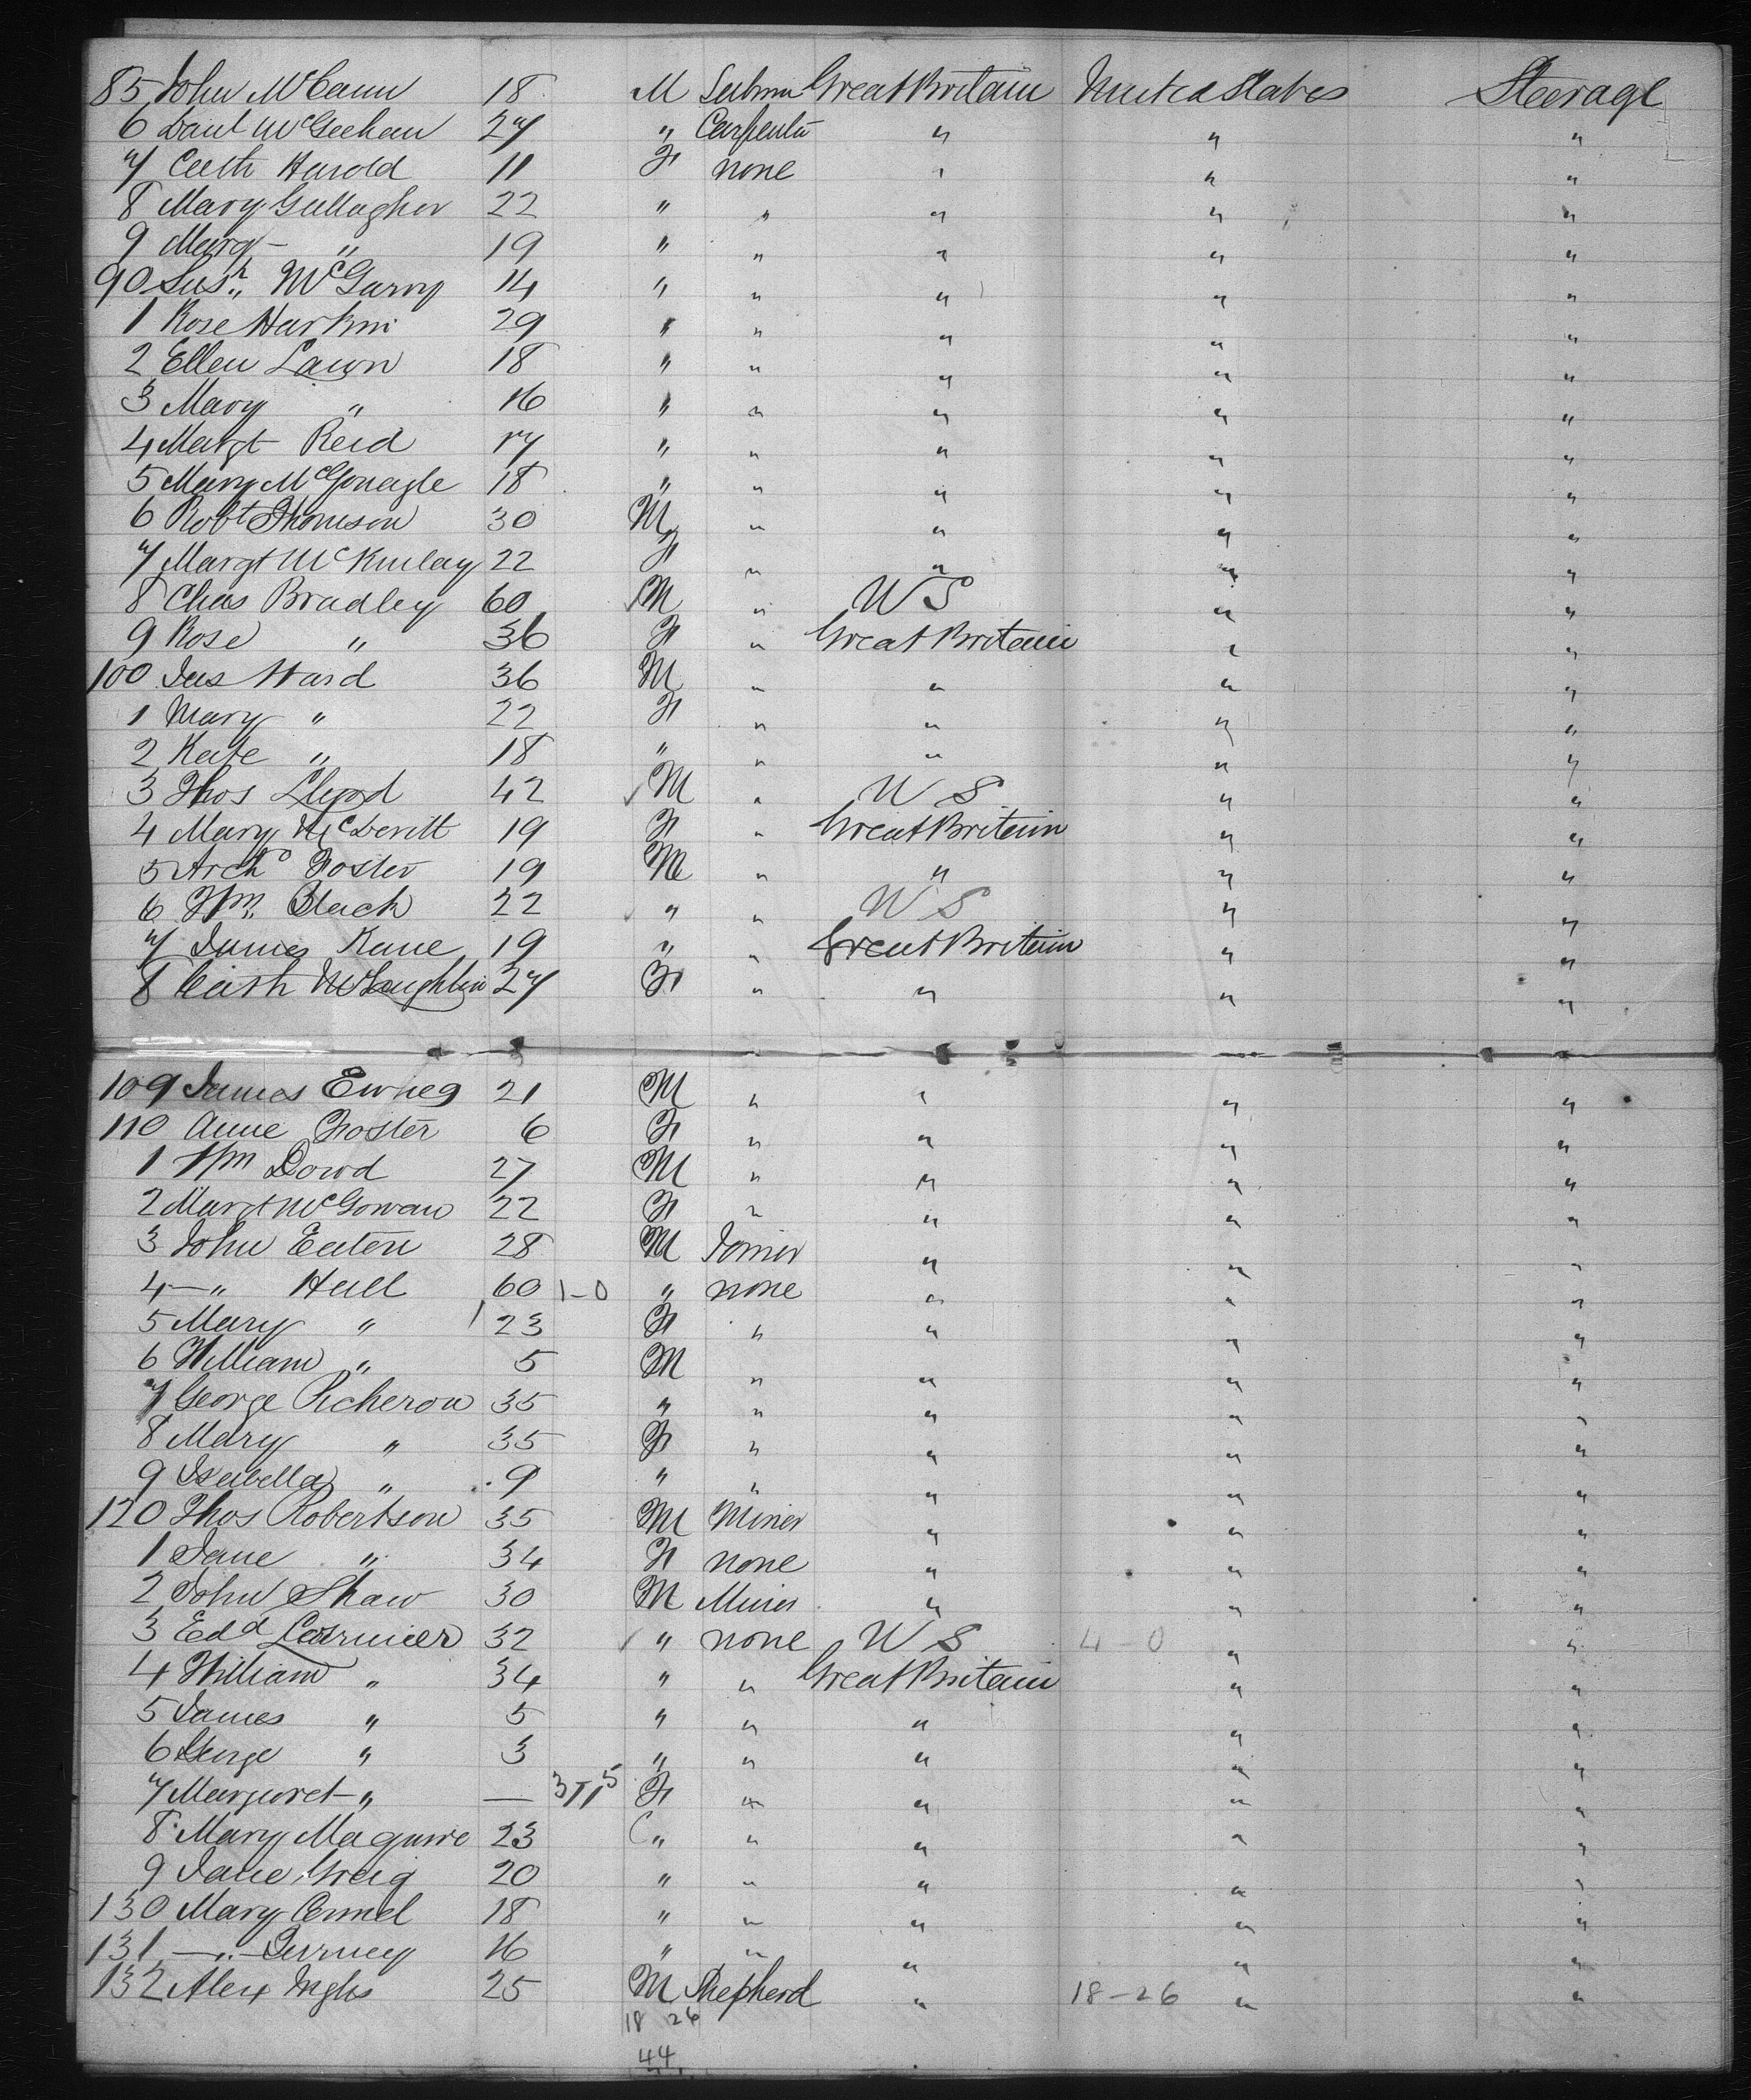 85 John McCann 18 M Great Britain United States Steerage
6 Danl McGeehan 27 " Carpenter " " "
7 Cath Harold 11 F none " " "
8 Mary Gallagher 22 " " " " "
9 Marg " 19 " " " " "
90 Sush McGarvy 14 " " " " "
1 Rose Harkin 29 " " " " "
2 Ellen Lawn 18 " " " " "
3 Mary " 16 " " " " "
4 Margt Reid 17 " " " " "
5 Mary McGonagle 18 " " " " "
6 Robt Thomson 30 M " " " "
7 Margt McKinlay 22 F " " " "
8 Chas Bradley 60 M " U S " "
9 Rose " 36 F " Great Britain " "
100 Jas Ward 36 M " " " "
1 Mary " 22 F " " " "
2 Kate " 18 " " " " "
3 Thos Lloyd 42 M " U S " "
4 Mary McDevitt 19 F " Great Britain " "
5 Archd Foster 19 M " " " "
6 Wm Black 22 " " U S " "
7 James Kane 19 " " Great Britain " "
8 Cath McLaughlin 27 F " " " "
109 James 21 M " " " "
110 Anne Foster 6 F " " " "
1 Wm Dowd 27 M " " " "
2 Margt McGowan 22 F " " " "
3 John Eaton 28 M Joiner " " "
4 — " Hall 60 1-0 " none " " "
5 Mary " 23 F " " " "
6 William " 5 M " " " "
7 George Picheron 35 " " " " "
8 Mary " 35 F " " " "
9 Isabella " 9 " " " " "
120 Thos Robertson 35 M Miner " " "
1 Jane " 34 F none " " "
2 John Shaw 30 M Miner " " "
3 Edd 32 " none U S 4-0 " "
4 William " 34 " " Great Britain " "
5 James " 5 " " " " "
6 George " 3 " " " " "
7 Margaret " — F " " " "
8 Mary Maguire 23 " " " " "
9 Jane Greig 20 " " " " "
130 Mary 18 " " " " "
131 — " — 16 " " " " "
132 Alex Inglis 25 M Shepherd " 18-26 " "
18 26
44